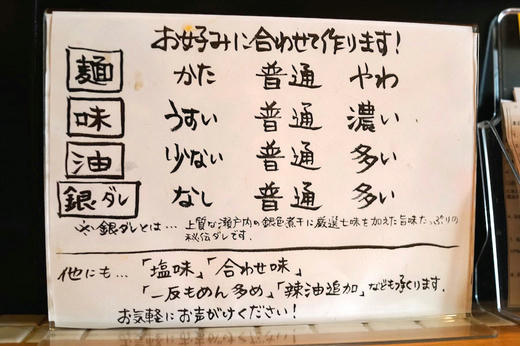 お好みに合わせて作ります!
麺 かた 普通 やわ
味 うすい 普通 濃い
油 少ない 普通 多い
銀ダレ なし 普通 多い
※銀ダレとは… 上質な瀬戸内の銀色煮干に厳選七味を加えた旨味たっぷりの
秘伝ダレです.
他にも…「塩味」「合わせ味」
「一反もめん多め」「辣油追加」なども承ります.
お気軽にお声がけください!